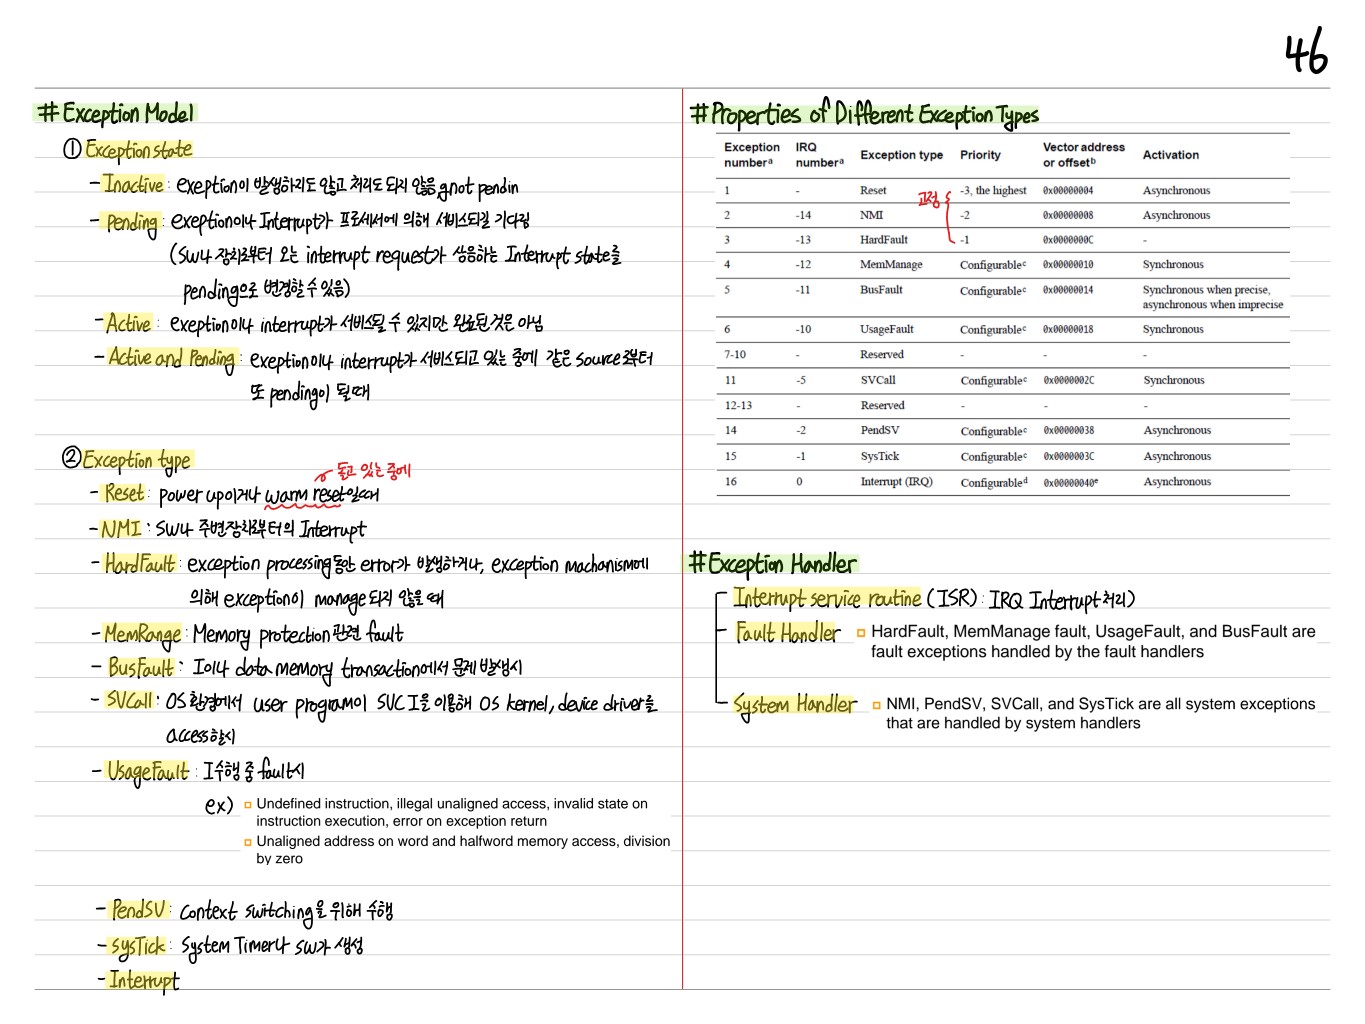 46
# Exception Model
① Exception state
- Inactive : exeption이 발생하지도 않고 처리도 되지 않음, not pendin
- Pending : exeption이나 Interrupt가 프로세서에 의해 서비스되길 기다림
(SW나 장치로부터 오는 interrupt request가 상응하는 Interrupt state를
pending으로 변경할 수 있음)
- Active : exeption이나 interrupt가 서비스될 수 있지만 완료된 것은 아님
- Active and Pending : exeption이나 interrupt가 서비스되고 있는 중에 같은 source로부터
또 pending이 될 때
② Exception type
돌고 있는 중에
- Reset : power up이거나 warm reset일때
- NMI : SW나 주변장치로부터의 Interrupt
- HardFault : exception processing동안 error가 발생하거나, exception machanism에
의해 exception이 manage 되지 않을 때
- MemRange : Memory protection 관련 fault
- BusFault : I이나 data memory transaction에서 문제 발생시
- SVCall : OS 환경에서 user program이 SVC I을 이용해 OS kernel, device driver를
access할시
- UsageFault : I수행 중 fault시
ex) Undefined instruction, illegal unaligned access, invalid state on
instruction execution, error on exception return
Unaligned address on word and halfword memory access, division
by zero
- PendSV : Context switching을 위해 수행
- sysTick : System Timer나 SW가 생성
- Interrupt
# Properties of Different Exception Types
Exception number a IRQ number a Exception type Priority Vector address or offset b Activation
1 - Reset -3, the highest 0x00000004 Asynchronous
고정
2 -14 NMI -2 0x00000008 Asynchronous
3 -13 HardFault -1 0x0000000C -
4 -12 MemManage Configurable c 0x00000010 Synchronous
5 -11 BusFault Configurable c 0x00000014 Synchronous when precise,
asynchronous when imprecise
6 -10 UsageFault Configurable c 0x00000018 Synchronous
7-10 - Reserved - - -
11 -5 SVCall Configurable c 0x0000002C Synchronous
12-13 - Reserved - - -
14 -2 PendSV Configurable c 0x00000038 Asynchronous
15 -1 SysTick Configurable c 0x0000003C Asynchronous
16 0 Interrupt (IRQ) Configurable d 0x00000040 e Asynchronous
# Exception Handler
Interrupt service routine (ISR) : IRQ Interrupt 처리)
Fault Handler HardFault, MemManage fault, UsageFault, and BusFault are
fault exceptions handled by the fault handlers
System Handler NMI, PendSV, SVCall, and SysTick are all system exceptions
that are handled by system handlers